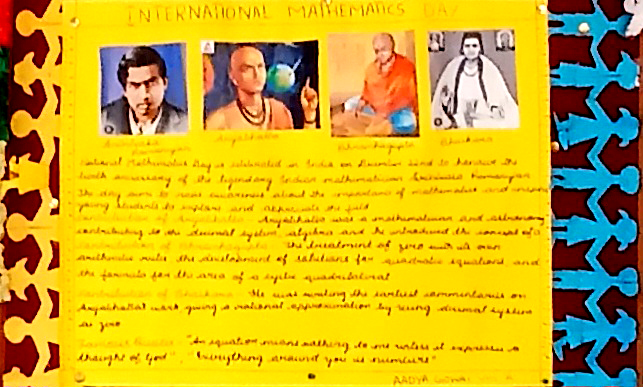 INTERNATIONAL MATHEMATICS DAY
Aryabhatta Brahmagupta Bhaskara
Ramanujan
National Mathematics Day is celebrated in India on December 22nd to honour the
birth anniversary of the legendary Indian mathematician Srinivasa Ramanujan
The day aims to raise awareness about the importance of mathematics and
young students to explore and appreciate the field
Contribution of Aryabhatta Aryabhatta was a mathematician and astronomy
contributing to the decimal system, algebra and he introduced the concept of 0
Contribution of Brahmagupta The treatment of zero with its own
arithmetic rules the development of solutions for quadratic equations, and
the formula for the area of a cyclic quadrilateral
Contribution of Bhaskara He was writing the earliest commentaries on
Aryabhatta's work giving a rational approximation by using decimal system
as zero
Famous Quotes "An equation means nothing to me unless it expresses a
thought of God", "Everything around you is numbers"
AADYA